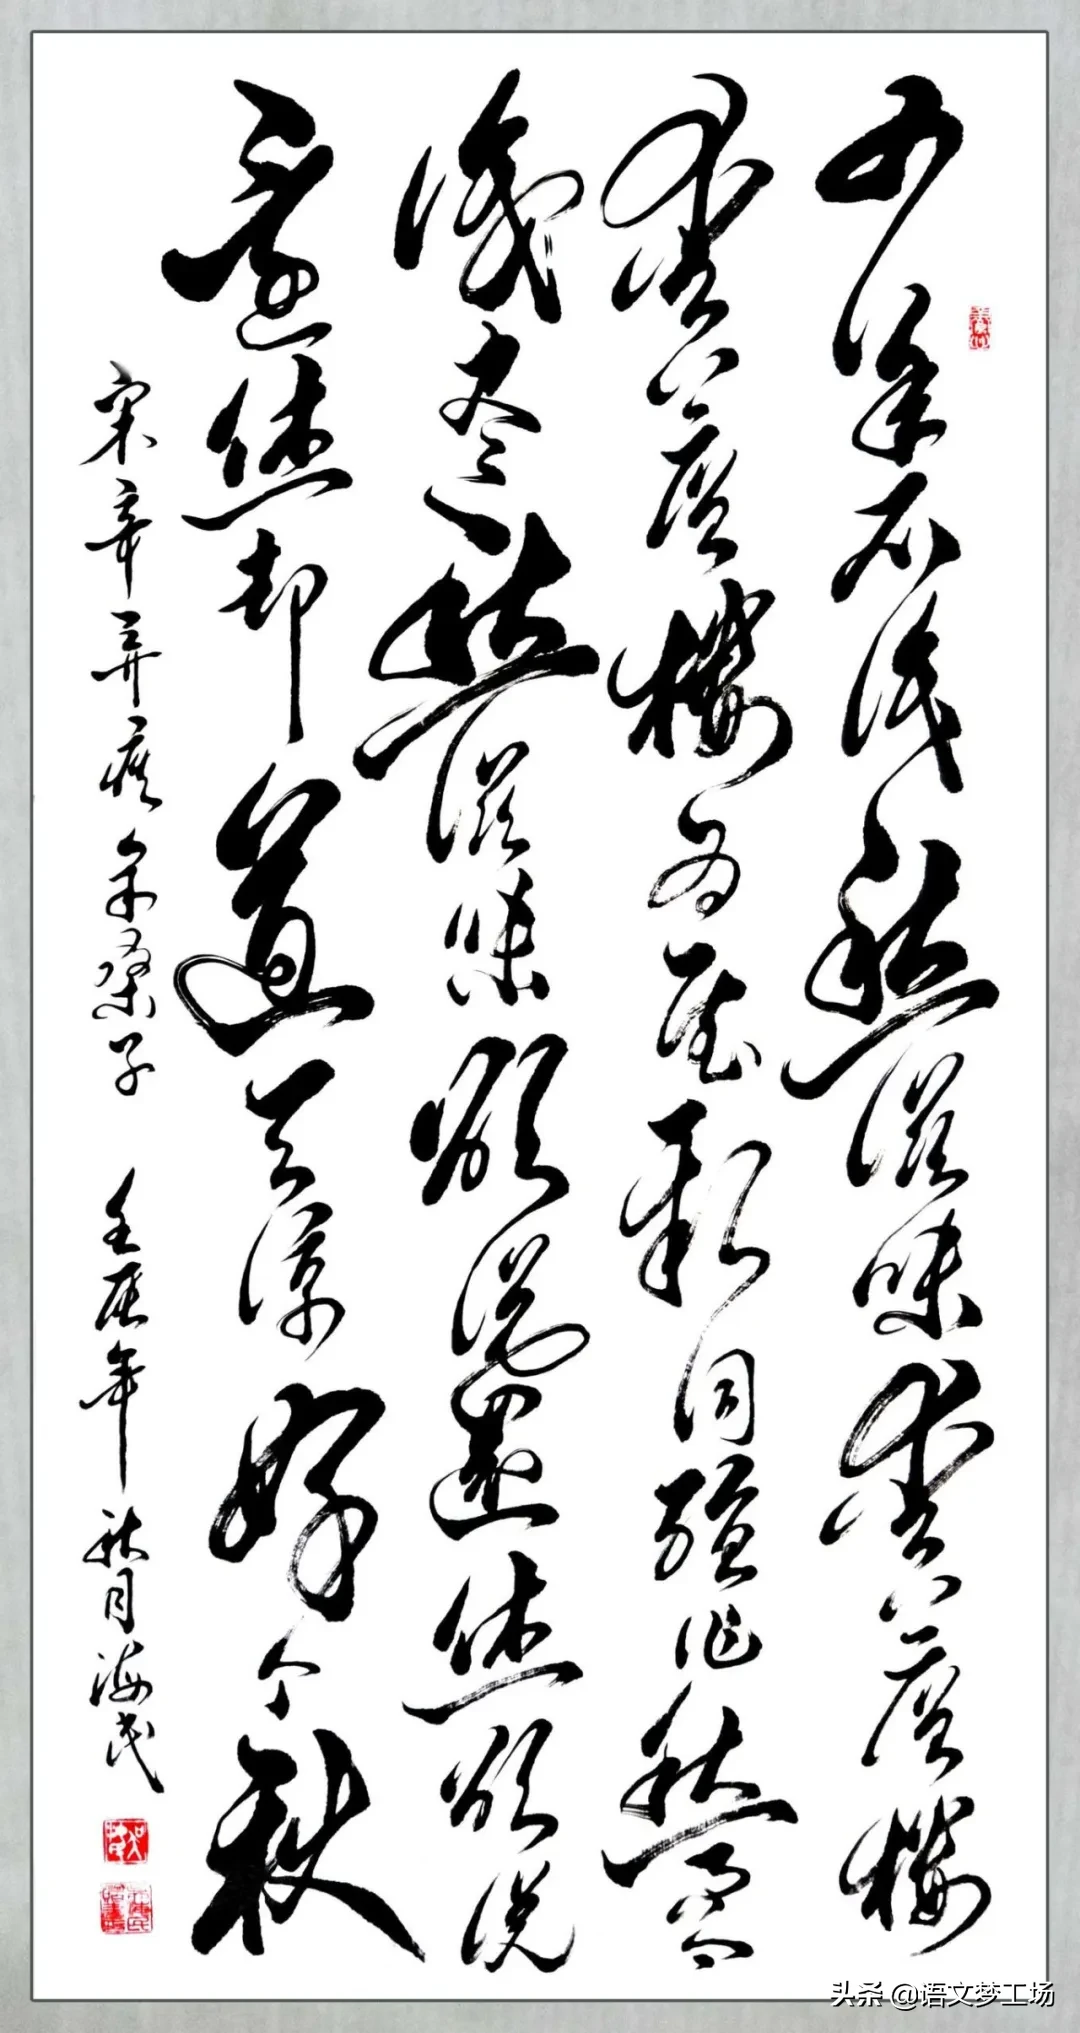 少年不识愁滋味爱上層樓
爱上層樓为赋新词强作愁而今
識尽愁滋味欲说還休欲说
還休却道天凉好个秋
宋辛弃疾采桑子 壬辰年秋月海民
头条 @语文梦工场